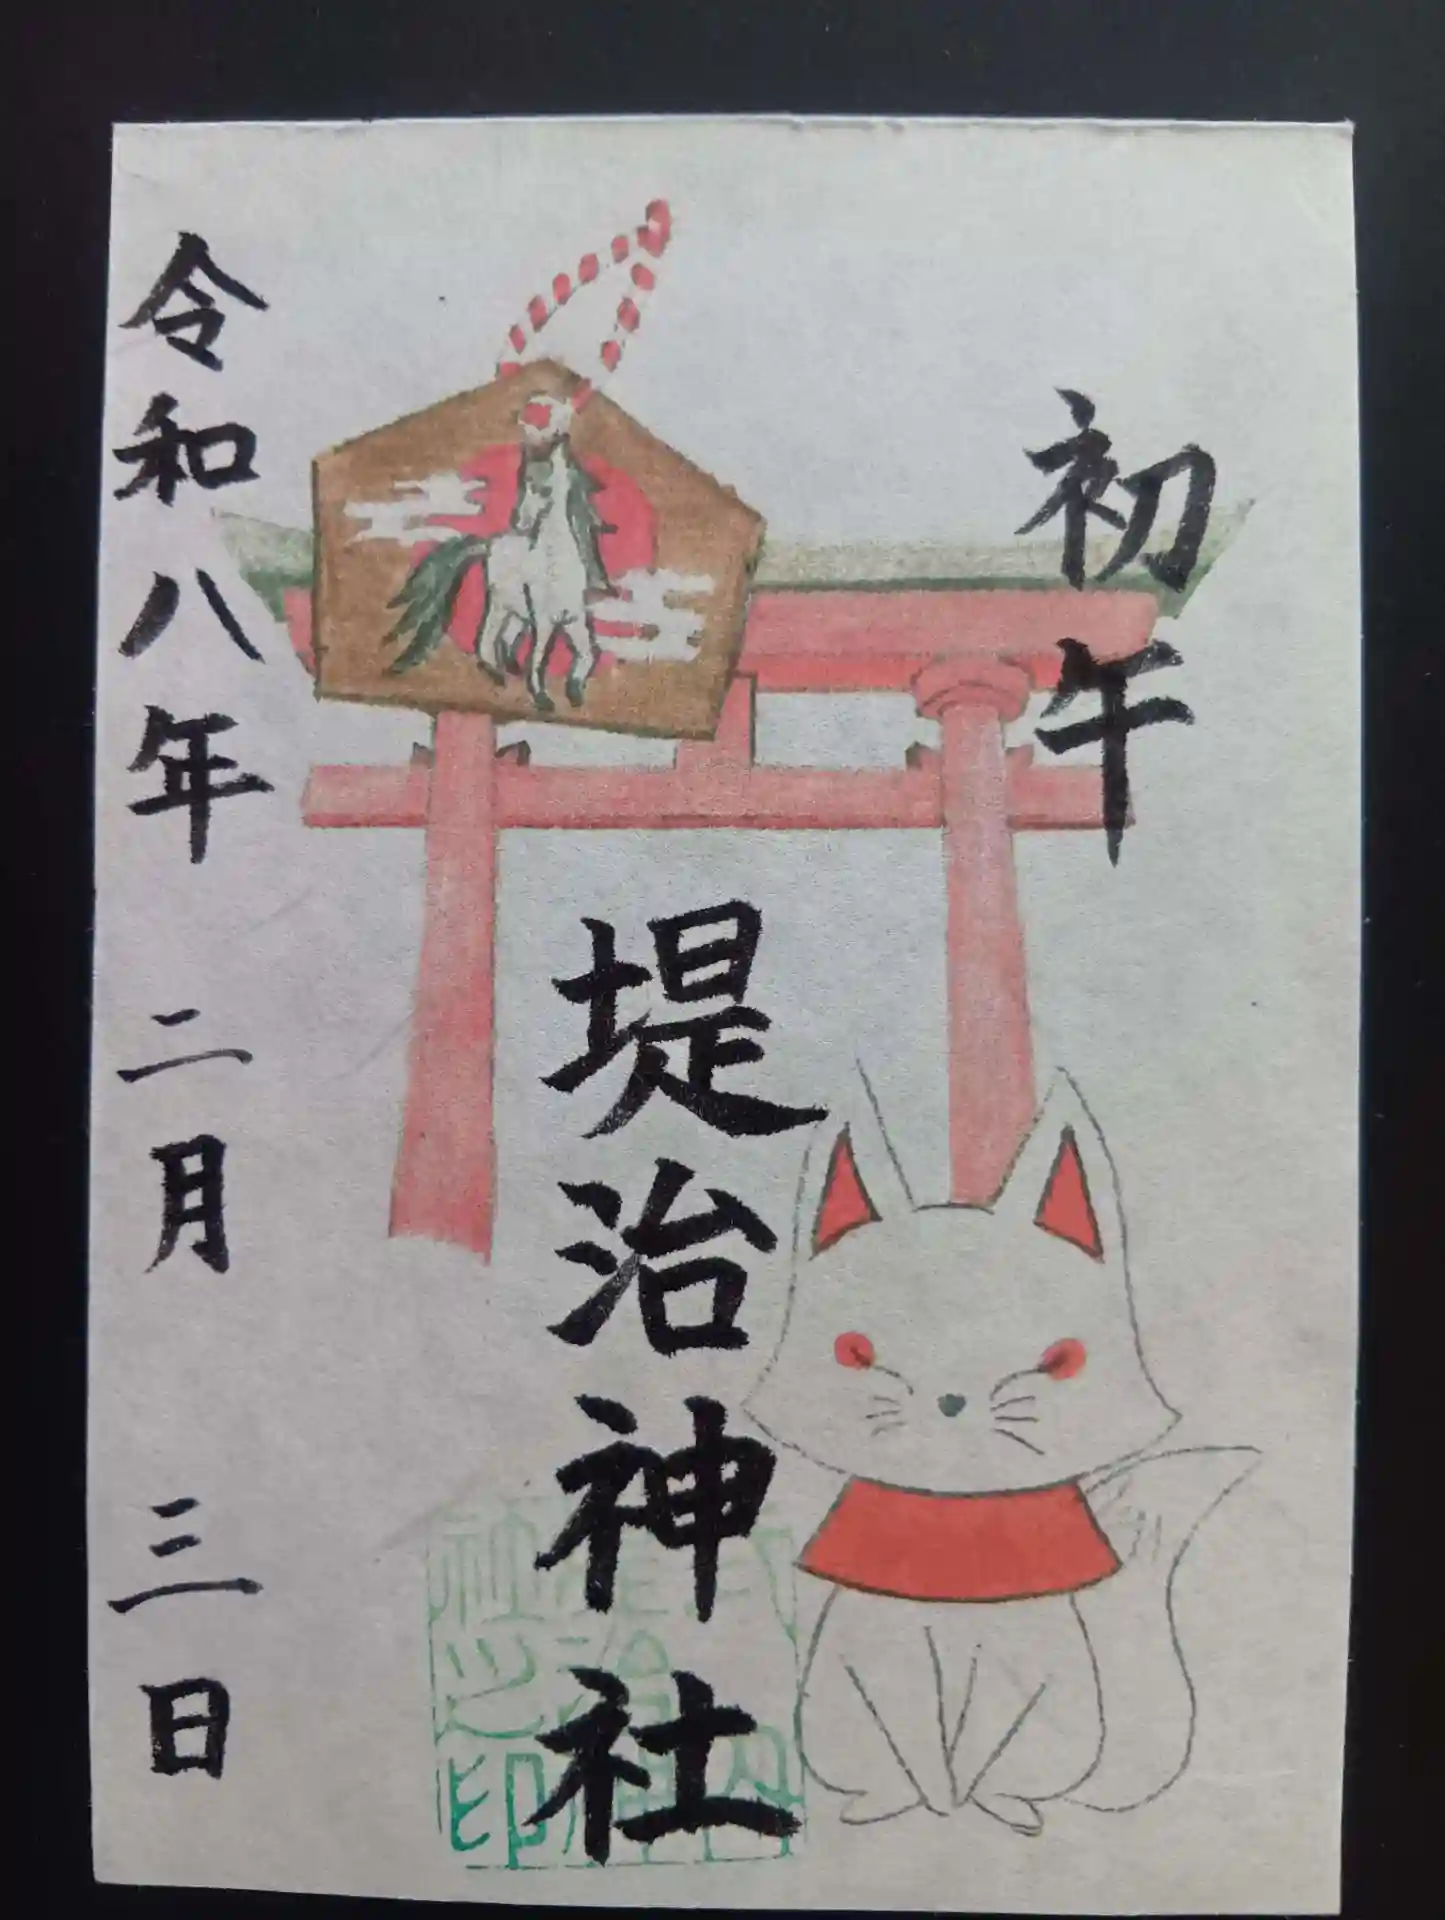 初午
堤治神社
令和八年 二月 三日